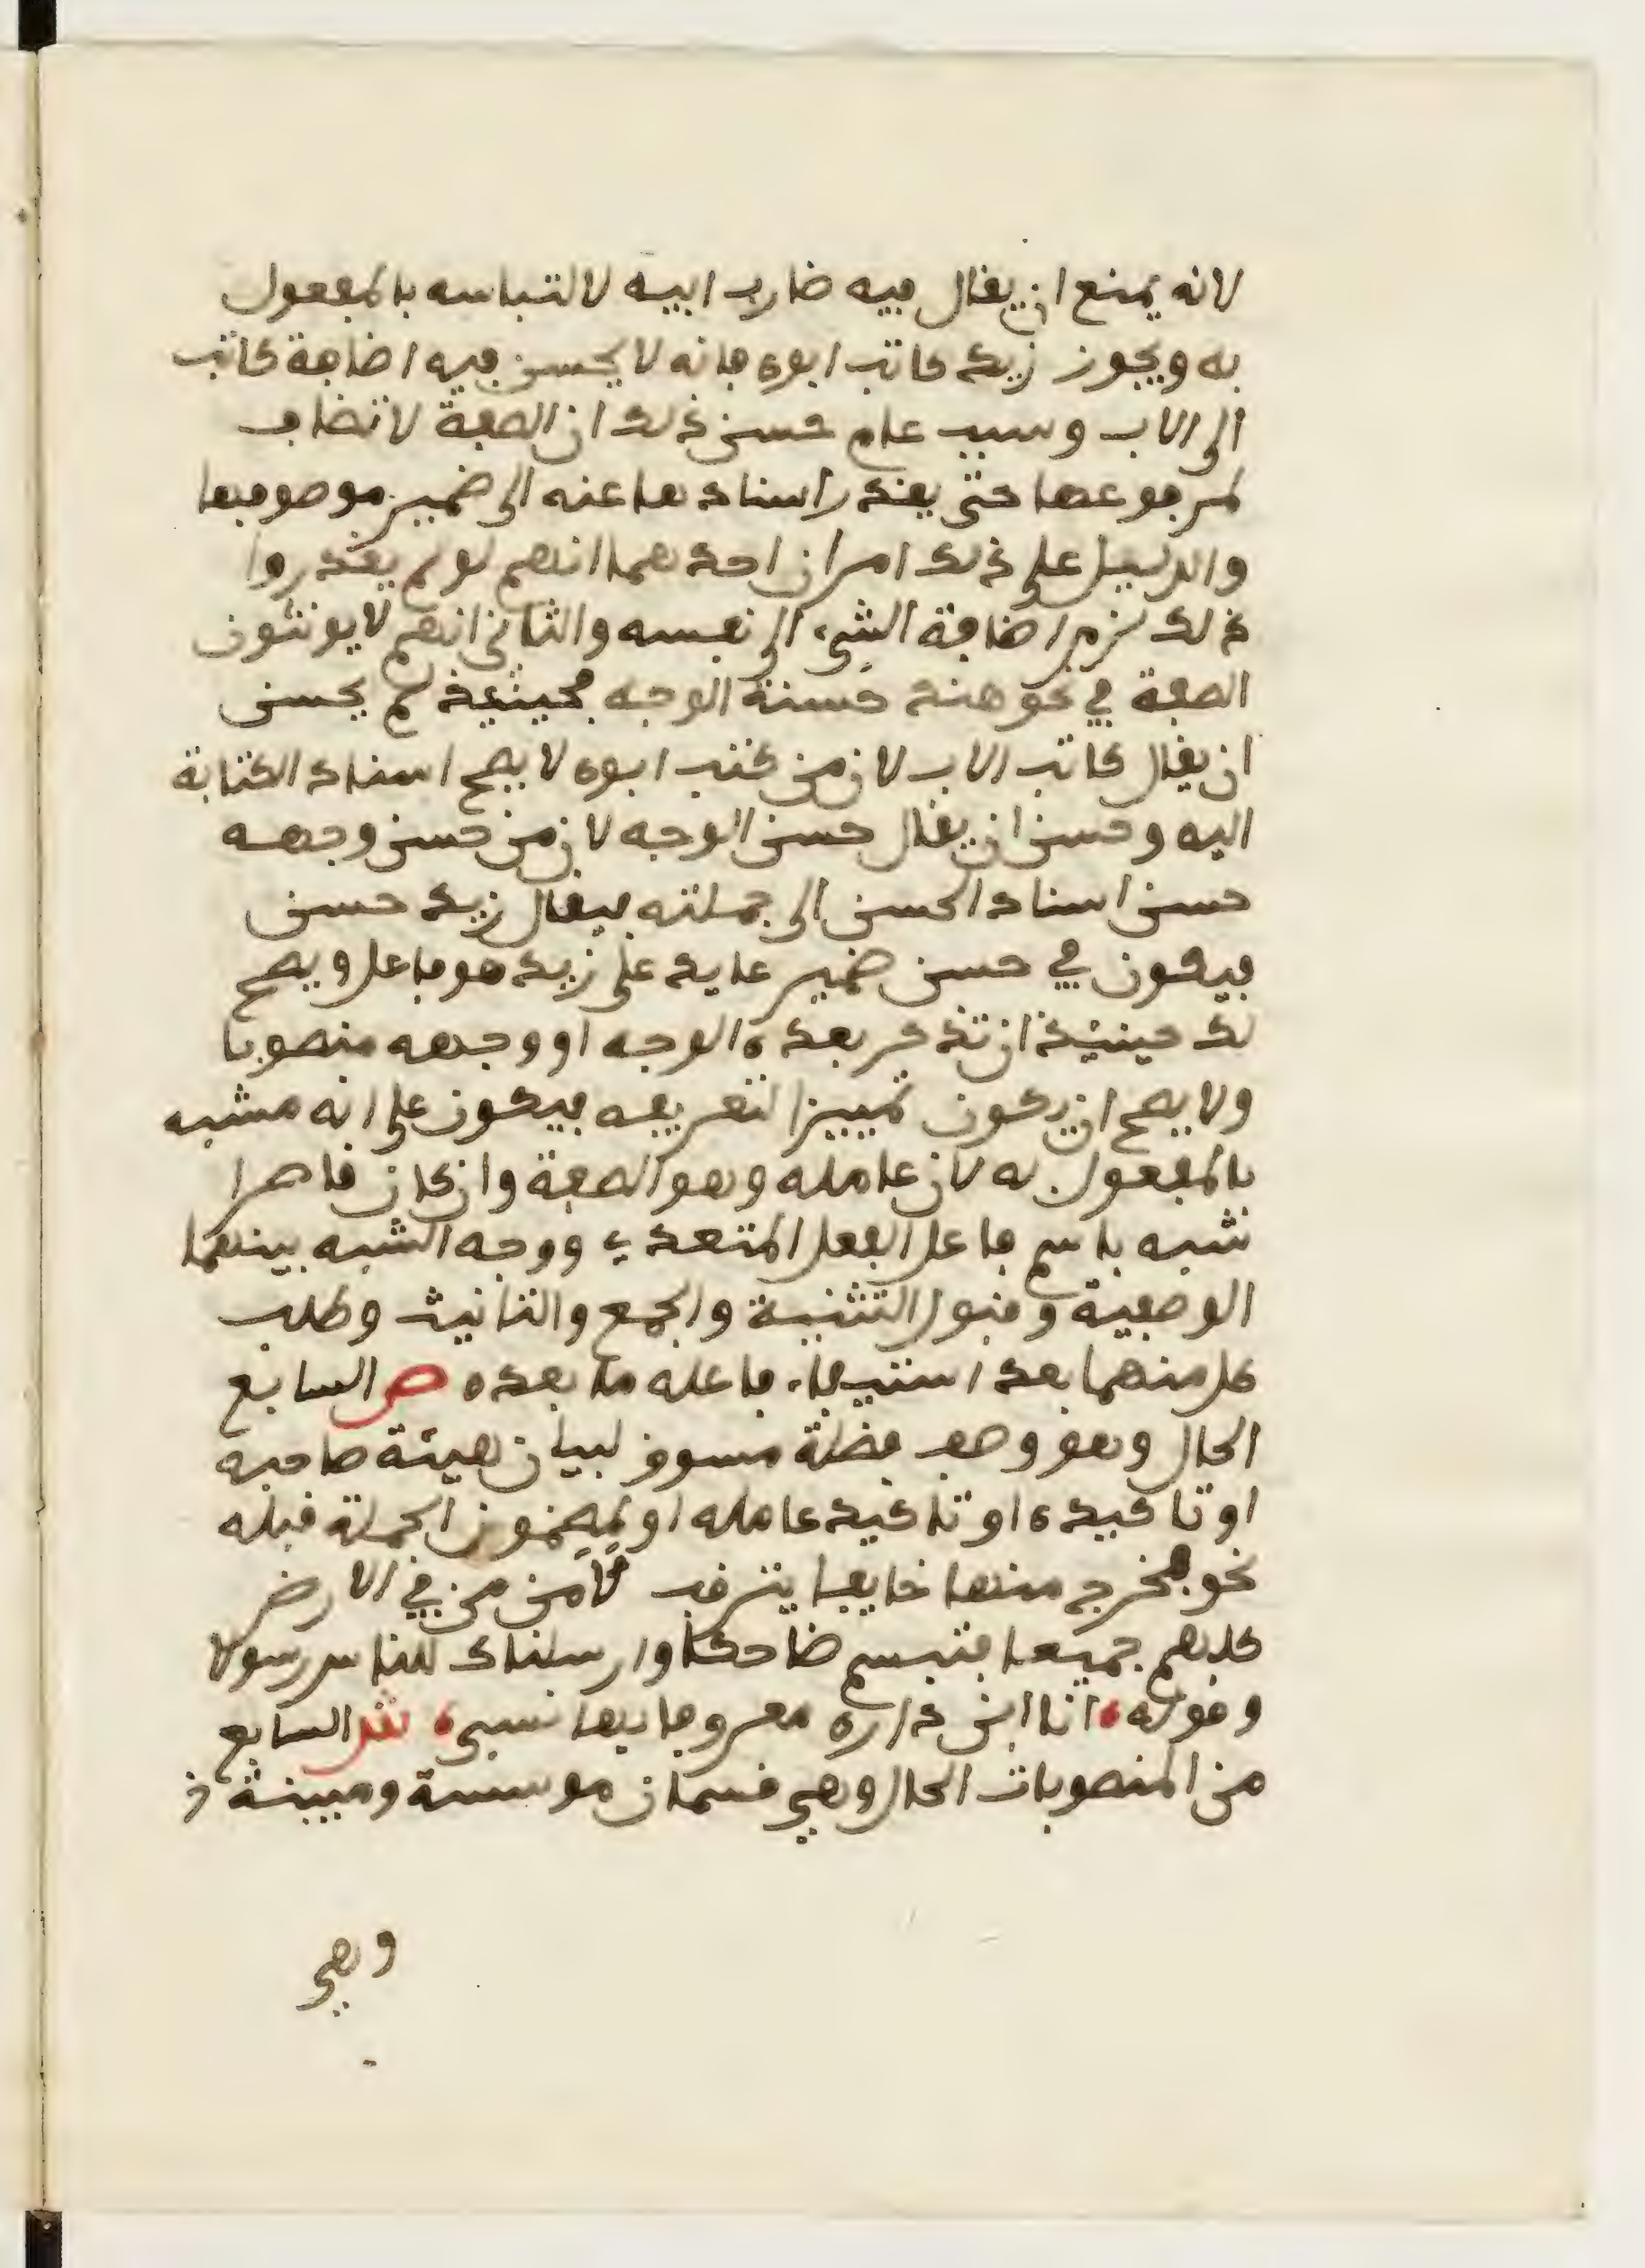 لانه يمنع ان يقال فيه ضارب ابيه لالتباسه بالمفعول
به ويجوز زيد كاتب ابوه فانه لا يحسن فيه اضافة كاتب
الى الاب وسبب عدم حسن ذلك ان الصفة لا تضاف
لمرفوعها حتى يقدر اسنادها عنه الى ضمير موصوفها
والدليل على ذلك امران احدهما انهم لو لم يقدروا
ذلك لزم اضافة الشيء الى نفسه والثاني انهم لا يونثون
الصفة في نحو هند حسنة الوجه فحينئذ لم يحسن
ان يقال كاتب الاب لان من كتب ابوه لا يصح اسناد الكتابة
اليه وحسن ان يقال حسن الوجه لان من حسن وجهه
حسن اسناد الحسن الى جملته فيقال زيد حسن
فيكون في حسن ضمير عايد على زيد هو فاعل ويصح
لك حينئذ ان تذكر بعده الوجه او وجهه منصوبا
ولا يصح ان يكون تمييزا لتعريفه فيكون على انه مشبه
بالمفعول به لان عامله وهو الصفة وان كان قاصرا
شبه باسم فاعل الفعل المتعدي ووجه الشبه بينهما
الوصفية وقبول التثنية والجمع والتانيث وطلب
كل منهما بعد استيفاء فاعله ما بعده ص السابع
الحال وهو وصف فضلة مسوق لبيان هيئة صاحبه
او تاكيده او تاكيد عامله او لمضمون الجملة قبله
نحو فخرج منها خايفا يترقب لامن من في الارض
كلهم جميعا فتبسم ضاحكا وارسلناك للناس رسولا
وقوله انا ابن دارة معروفا بها نسبي ش السابع
من المنصوبات الحال وهي قسمان موسسة ومبينة
وهي